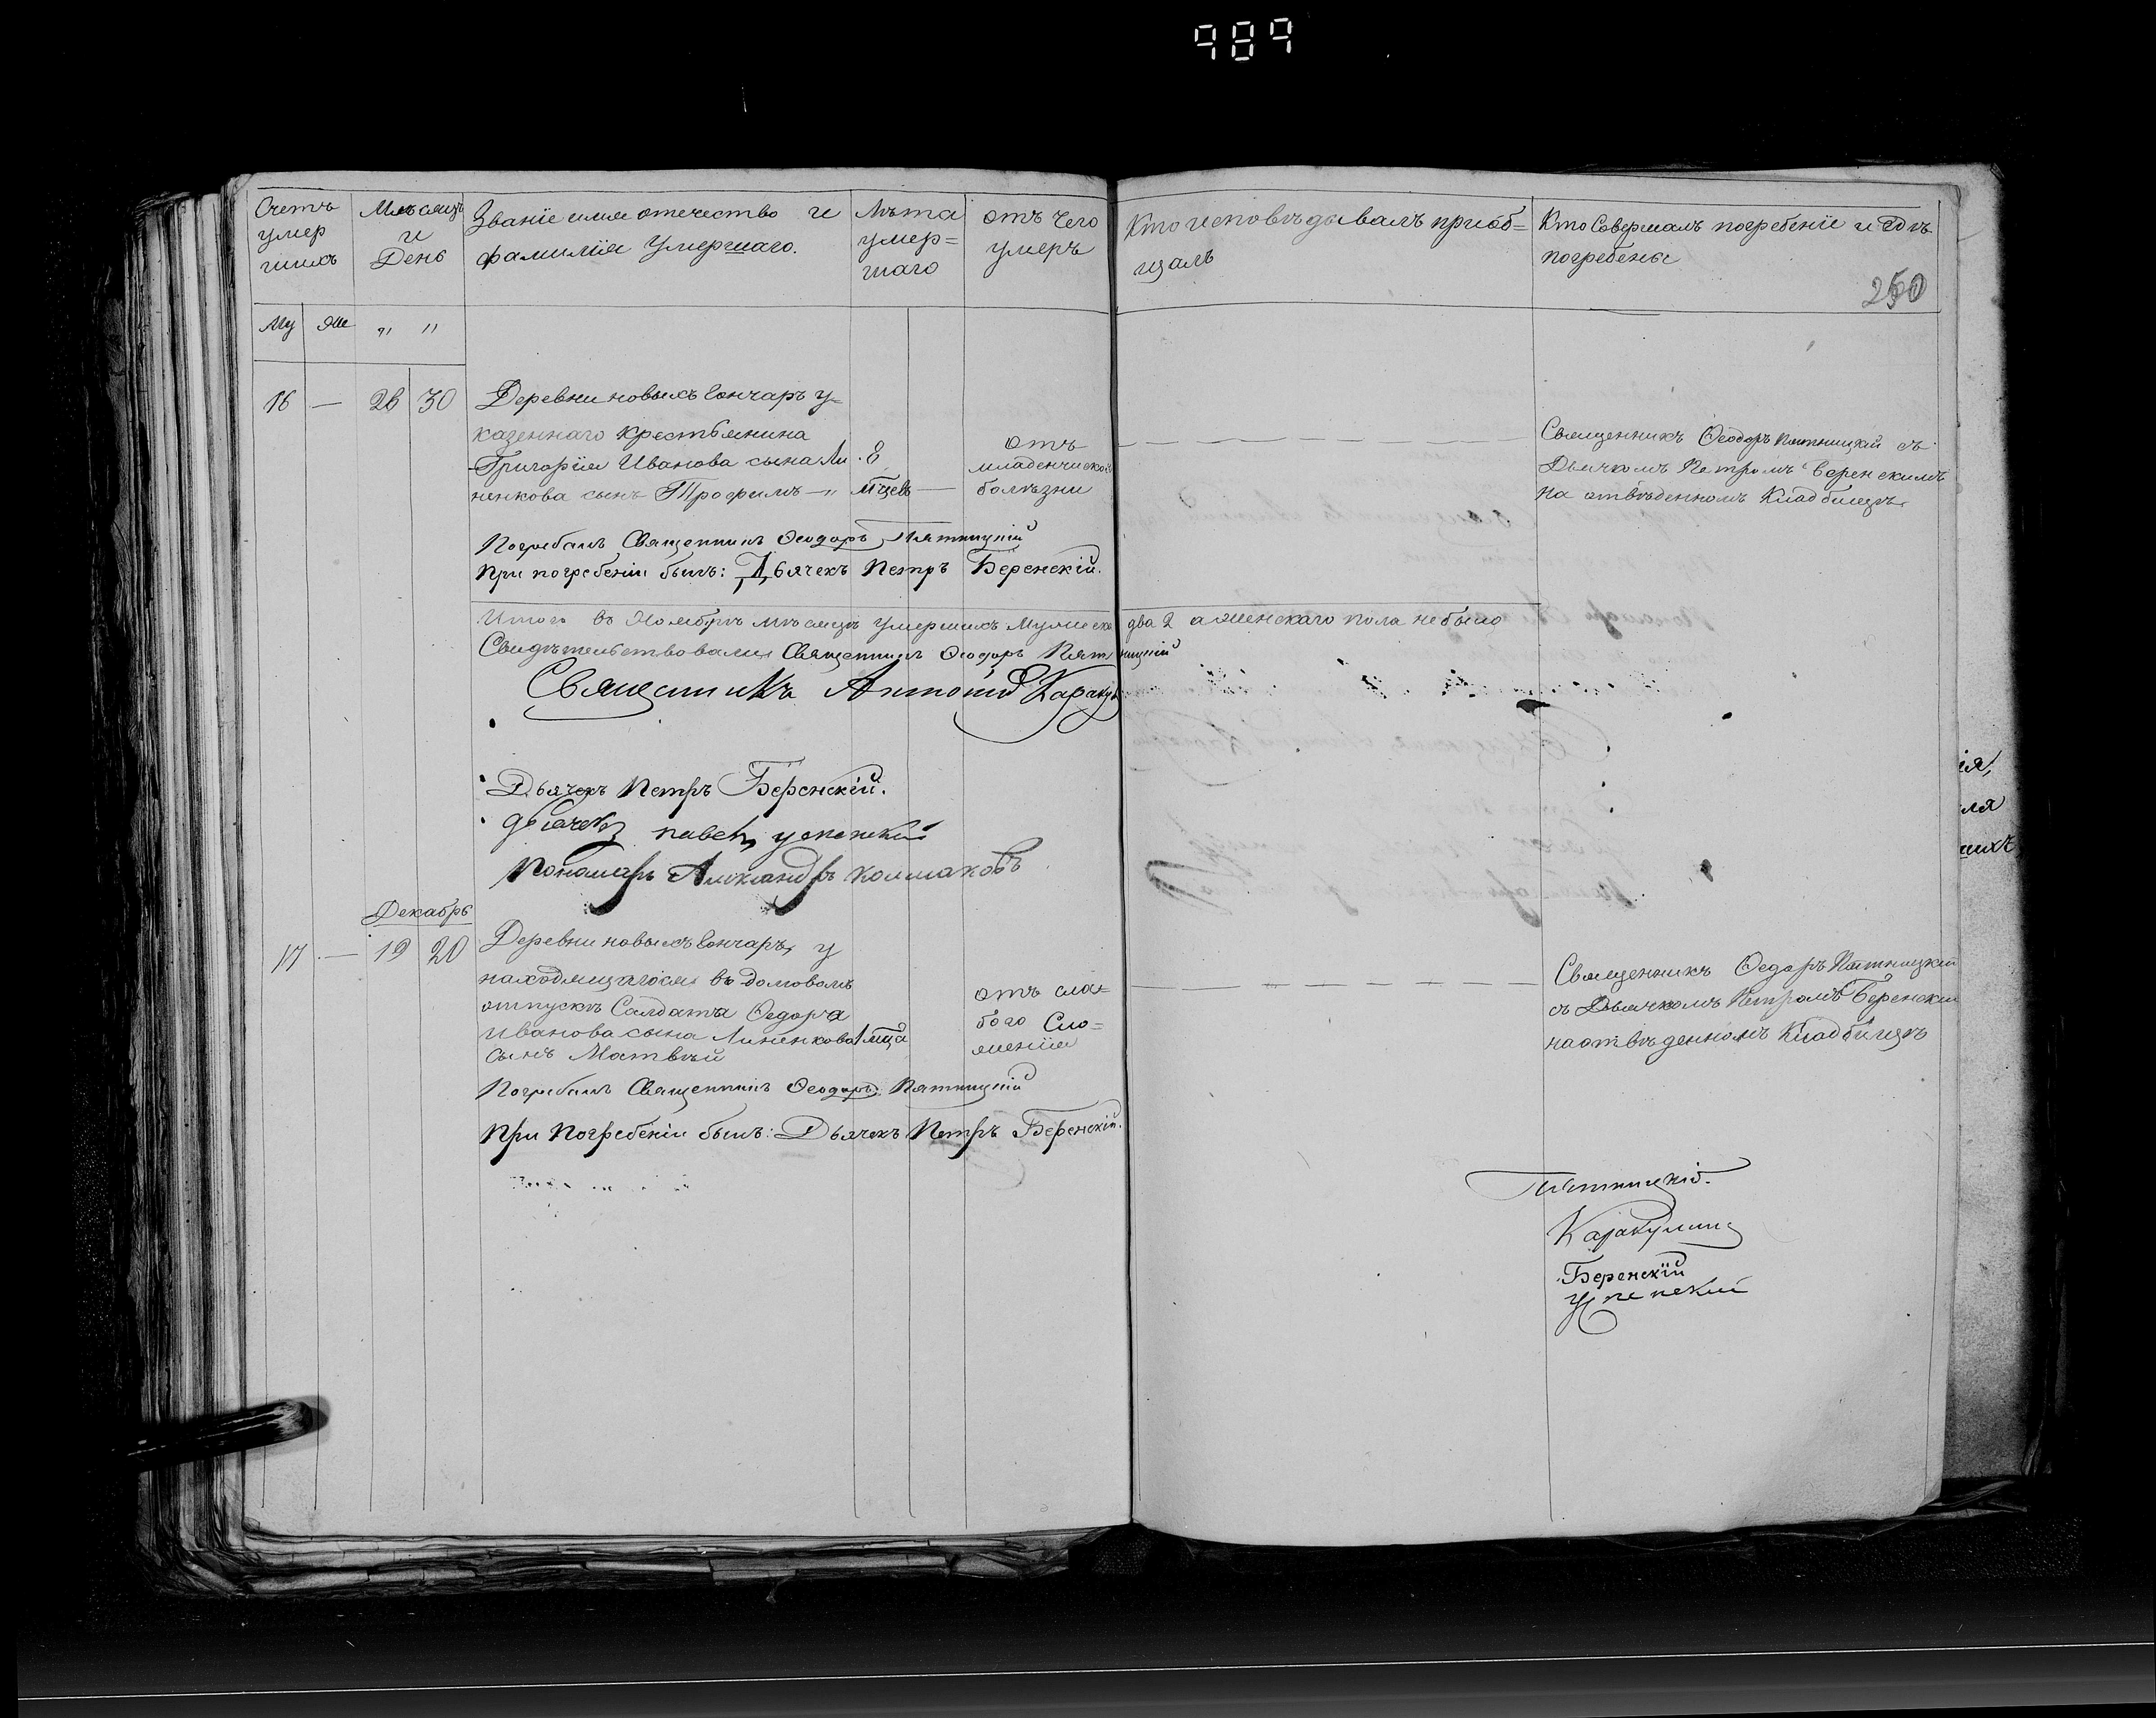 989
Счетъ умер шихъ
Мѣсяцъ и День
Званіе имя отечество и фамилія умершаго.
Лѣта умер= шаго
отъ чего умеръ
Кто исповѣдывалъ пріоб= щалъ
Кто Совершалъ погребеніе и гдѣ погребены
250
Му Же " "
16 — 26 30
Деревни новыхъ Гончаръ у
казеннаго крестьянина
Григорія Иванова сына Ли
ненкова сынъ Трофимъ — "
8
мѣцевъ —
отъ
младенческой
болѣзни
Священникъ Ѳеодоръ Пятницкій съ
Дьячкомъ Петромъ Беренскимъ
на отвѣденномъ Кладбищѣ
Погребалъ Священникъ Ѳеодоръ Пятницкій
При погребеніи былъ: Дьячекъ Петръ Беренскій.
Итого въ Ноябрѣ мѣсяцѣ умершихъ Мужеска два 2 а женскаго пола не было
Свидѣтельствовали Священникъ Ѳеодоръ Пятницкій
Священникъ Антоній Каракул
Дьячекъ Петръ Беренскій.
дьячекъ павелъ успенскій
Пономарь Александръ колмаковъ
Декабрь
17 — 19 20
Деревни новыхъ Гончаръ, у
находящагося въ домовомъ
отпускѣ Салдата Ѳедора
Иванова сына Линенкова
сынъ Матвѣй
1 мѣца
отъ сла=
бого Сло=
женія
Священникъ Ѳедоръ Пятницкій
съ Дьячкомъ Петромъ Беренским
на отвѣденномъ Кладбищѣ
Погребалъ Священникъ Ѳеодоръ Пятницкій
При Погребеніи былъ: Дьячекъ Петръ Беренскій.
Пятницкій.
Каракулинъ
Беренскій
Успенскій
ія,
ля
шихъ